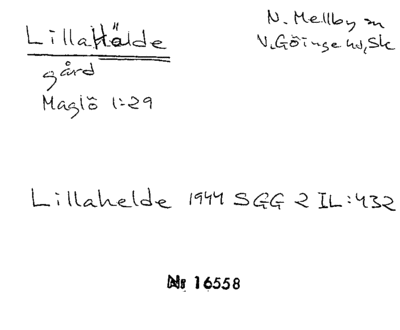 Lillahälde
N. Mellby sn
V. Göinge hd, Sk
gård
Maglö 1:29
Lillahelde 1944 SGG 2 IL:432
Nr 16558